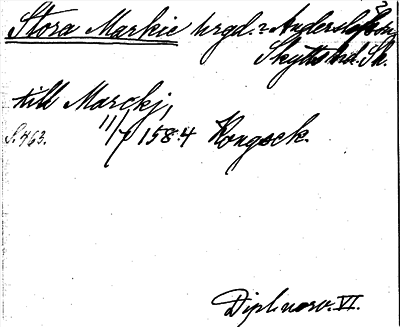 Stora Markie hrgd. i Anderslöfs sn,
Skytts hd. Sk.
till Marckj,
S. 463. 11/7 1584 Kongsck.
Dipl. norv. VI.